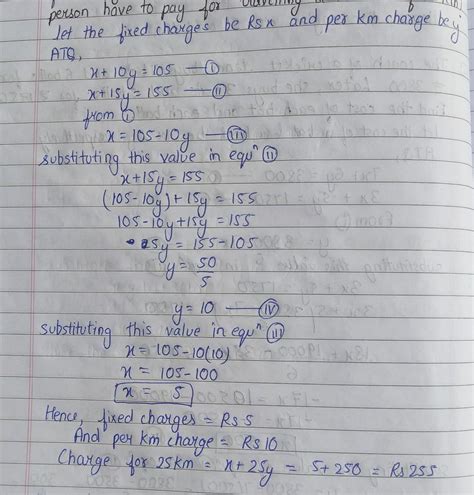 person have to pay for travelling
let the fixed charges be Rs x and per km charge be y
ATQ,
x+10y=105 — (I)
x+15y=155 — (II)
from (I)
x=105-10y — (III)
substituting this value in equⁿ (II)
x+15y=155
(105-10y)+15y = 155
105-10y+15y = 155
5y = 155-105
y = 50/5
y = 10 — (IV)
substituting this value in equⁿ (III)
x = 105-10(10)
x = 105-100
x = 5
Hence, fixed charges = Rs 5
And per km charge = Rs 10
Charge for 25km = x+25y = 5+250 = Rs 255